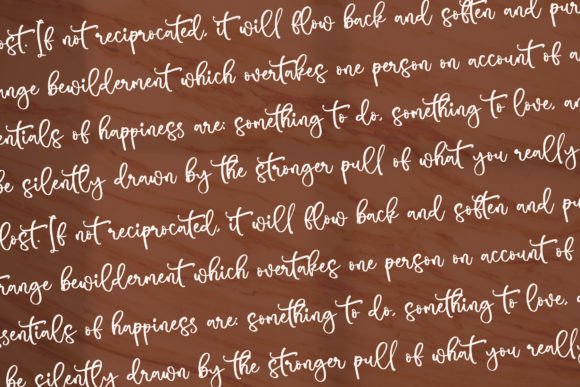 lost. If not reciprocated, it will flow back and soften and pur
ange bewilderment which overtakes one person on account of a
entials of happiness are: something to do, something to love, an
be silently drawn by the stronger pull of what you really
lost. If not reciprocated, it will flow back and soften and pu
range bewilderment which overtakes one person on account of
ssentials of happiness are: something to do, something to love,
be silently drawn by the stronger pull of what you reall